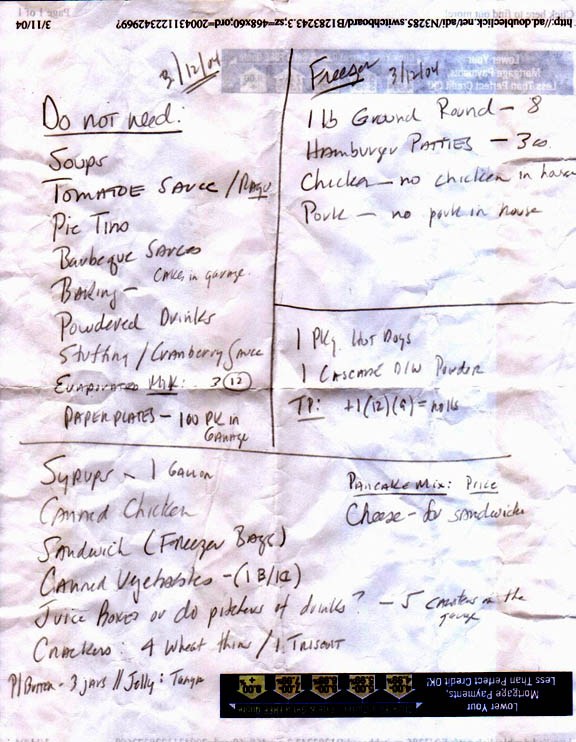 3/11/04
http://ad.doubleclick.net/adi/N3285.switchboard/B1283243.3;sz=468x60;ord=200431122342969?
Lower Your
Mortgage Payments,
Less Than Perfect Credit OK!
3/12/04
Do not need:
Soups
Tomatoe Sauce / Ragu
Pic Tino
Barbeque Sauces
Baking - Cakes in garage.
Powdered Drinks
Stuffing / Cranberry Sauce
Evaporated Milk: 3 (12)
Paper Plates - 100 PK in
Garage
Freezer 3/12/04
1 lb Ground Round - 8
Hamburger Patties - 3
Chicken - no chicken in house
Pork - no pork in house
1 Pkg. Hot Dogs
1 Cascade D/W Powder
TP: +1(12)(9) = rolls
Syrups - 1 Gallon
Canned Chicken
Sandwich (Freezer Bags)
Canned Vegetables - (13/12)
Juice Boxes or do pitchers of drinks? - 5 in the
garage
Crackers: 4 Wheat thin / 1 Trisent
P/Butter - 3 jars // Jelly:
Pancake Mix: Price
Cheese - for sandwiche
Lower Your
Mortgage Payments,
Less Than Perfect Credit OK!